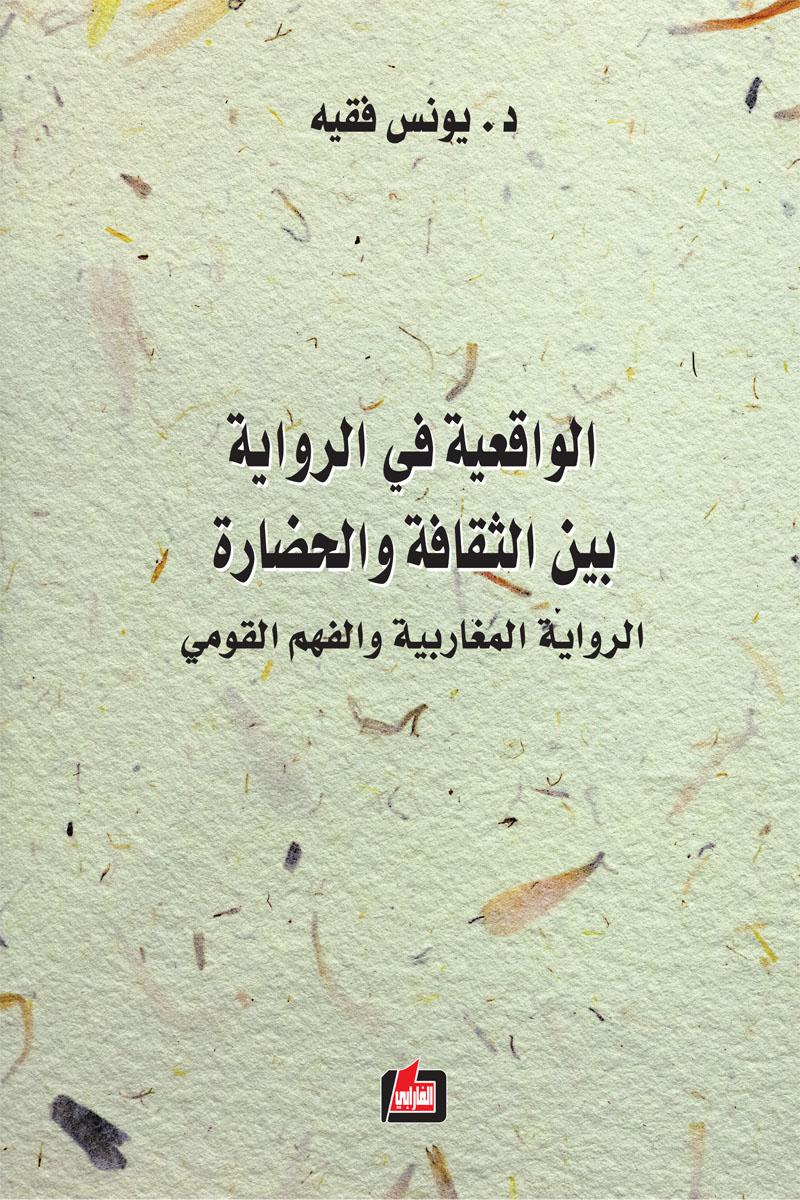 د. يونس فقيه
الواقعية في الرواية
بين الثقافة والحضارة
الرواية المغاربية والفهم القومي
الفارابي